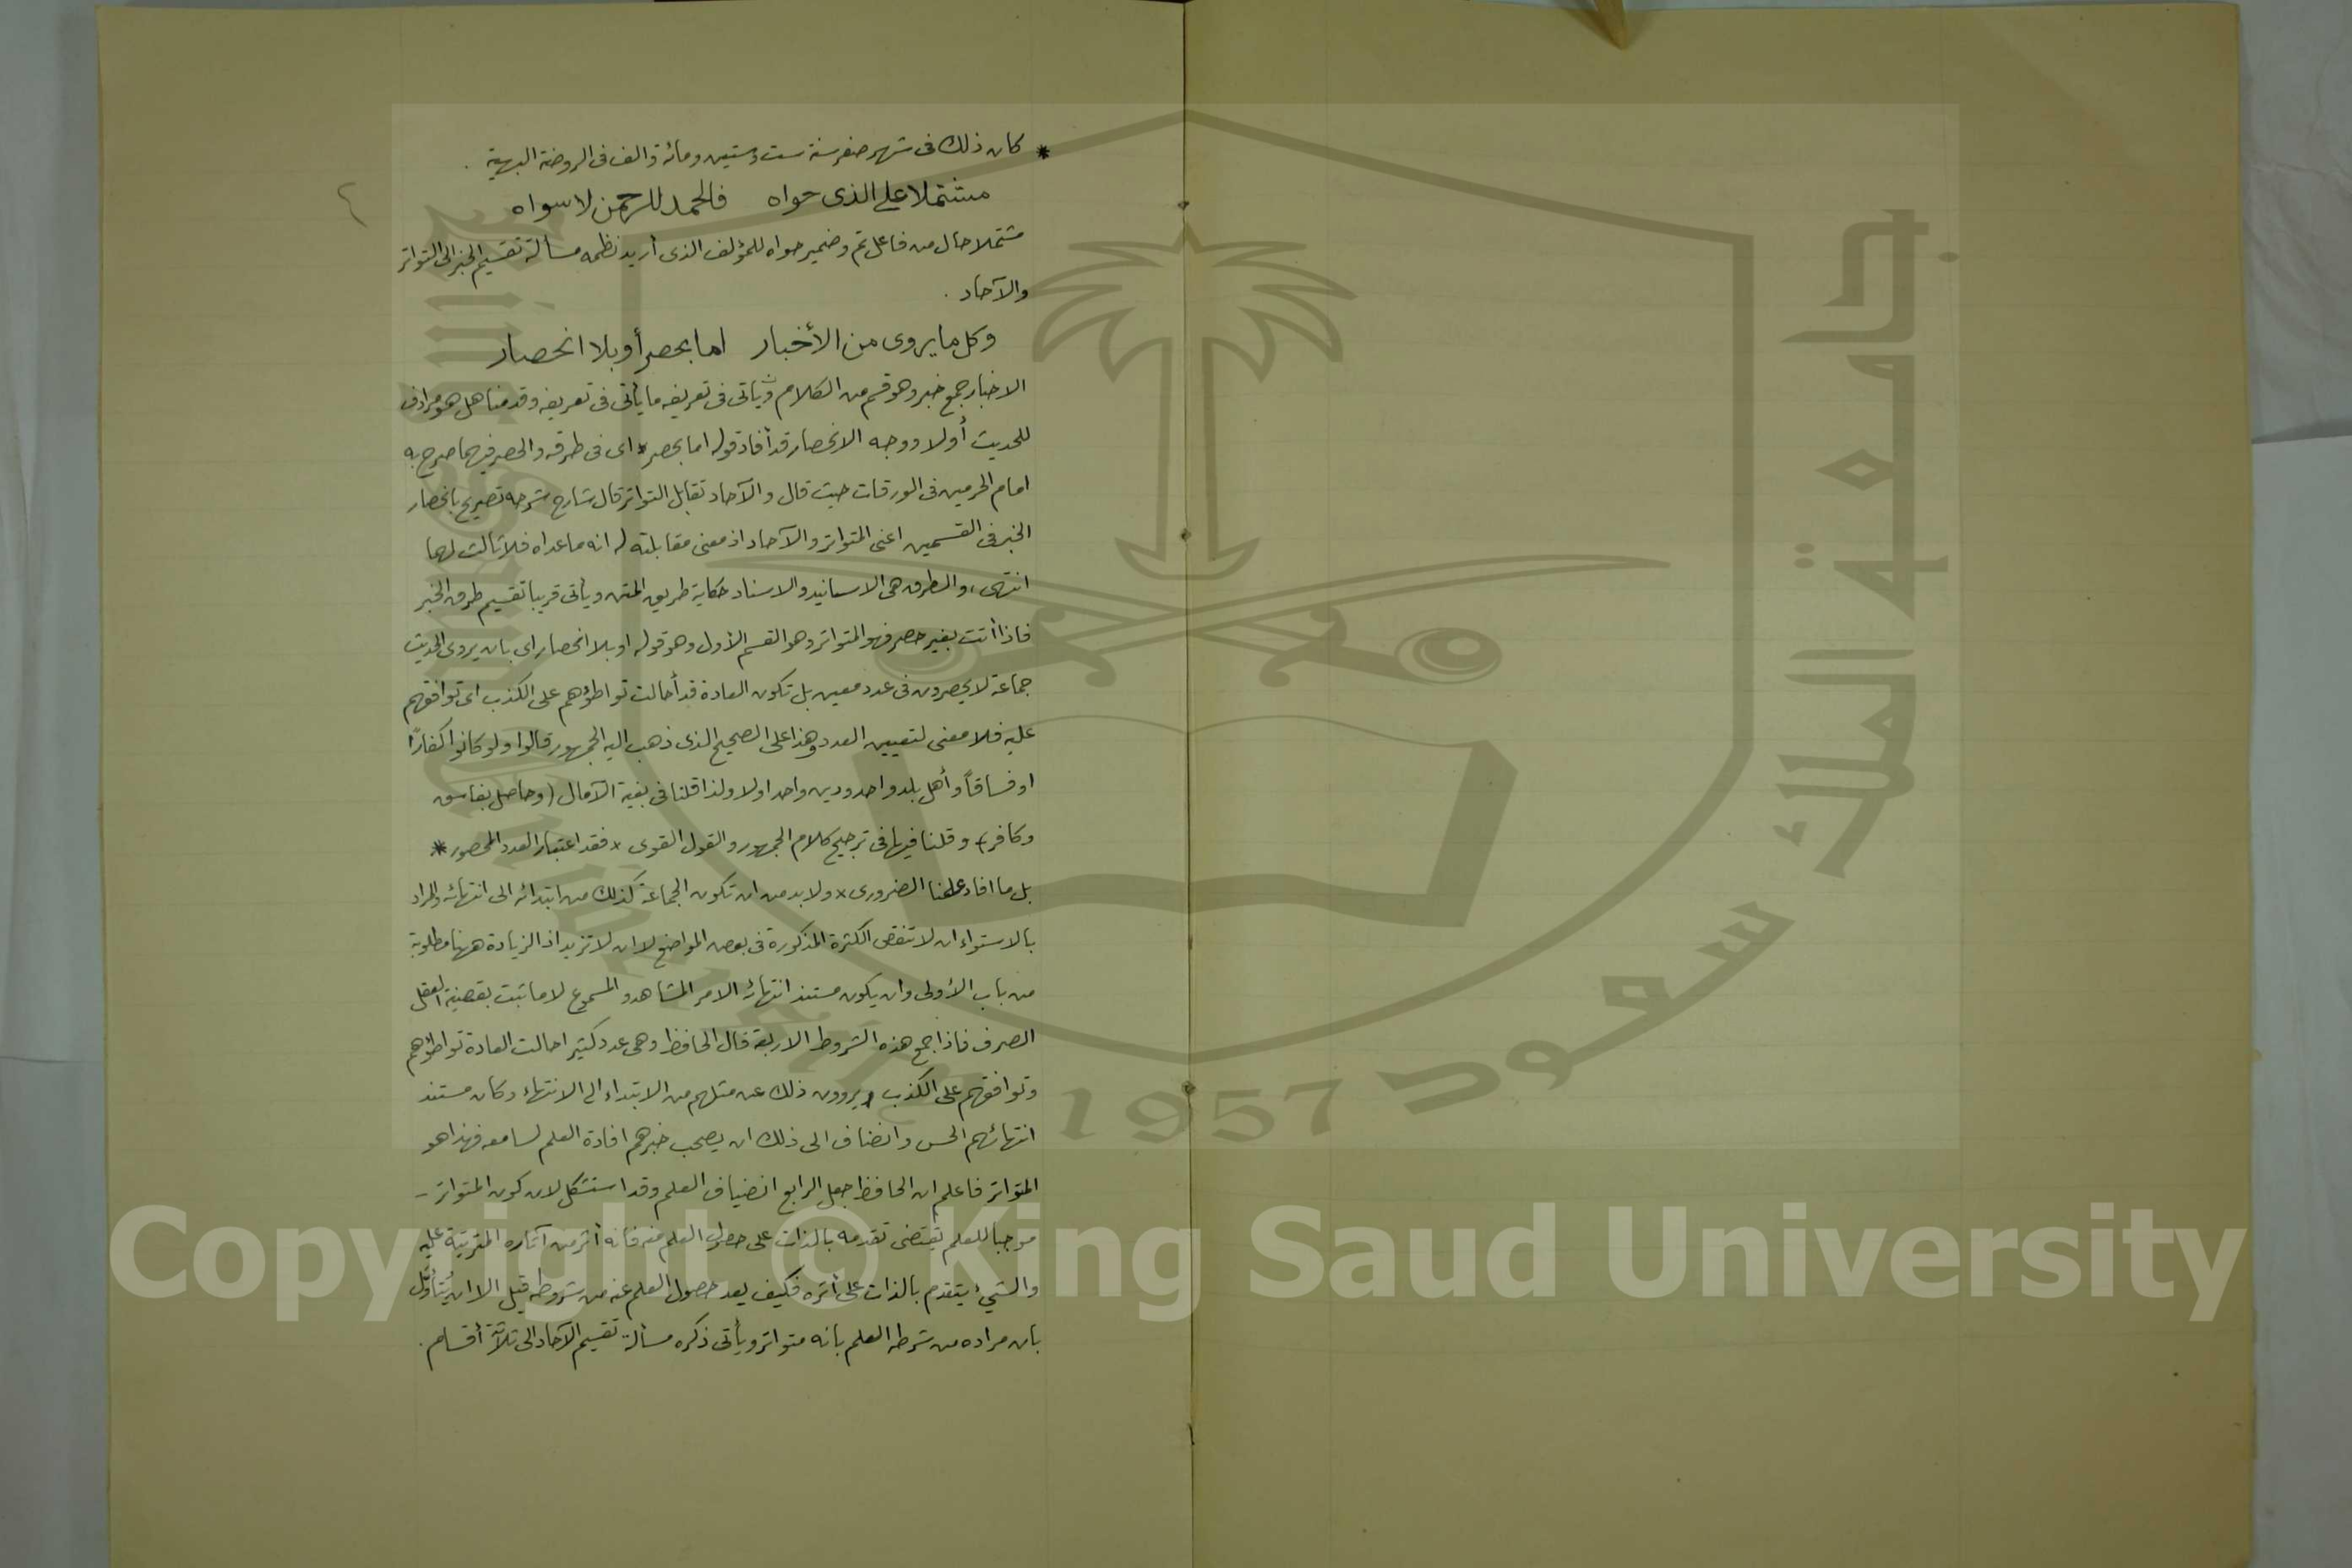 ٤
* كان ذلك فى شهر صفر سنة ست وستين ومائة والف فى الروضة البهية .
مشتملا على الذى حواه فالحمد للرحمن لا سواه
مشتملا حال من فاعل تم وضمير حواه للمؤلف الذى أريد نظمه مسألة تقسيم الخبر الى التواتر
والآحاد .
وكل ما يروى من الأخبار اما بحصر أو بلا انحصار
الاخبار جمع خبر وهو قسم من الكلام ويأتى فى تعريفه ما يأتى فى تعريفه وقدمنا هل هو مرادف
للحديث أولا ووجه الانحصار قد أفاد قوله اما بحصر اى فى طرقه والحصر فيهما صرح به
امام الحرمين فى الورقات حيث قال والآحاد تقابل التواتر قال شارح شرحه تصريح بانحصار
الخبر فى القسمين اعنى المتواتر والآحاد اذ معنى مقابلته له انه ما عداه فلا ثالث لهما
انتهى، والطرق هى الاسانيد والاسناد حكاية طريق المتن ويأتى قريبا تقسيم طرق الخبر
فاذا أتت بغير حصر فهو المتواتر وهو القسم الأول وهو قوله او بلا انحصار اى بان يروى الحديث
جماعة لا يحصرون فى عدد معين بل تكون العادة قد أحالت تواطؤهم على الكذب اى توافقهم
عليه فلا معنى لتعيين العدد وهذا على الصحيح الذى ذهب اليه الجمهور قالوا ولو كانوا كفارًا
او فساقاً وأهل بلد واحد ودين واحد اولا ولذا قلنا فى بغية الآمال (وحاصل بفاسق
وكافر) وقلنا فيها فى ترجيح كلام الجمهور والقول القوى × فقد اعتبار العدد المحصور *
بل ما افاد علمنا الضرورى × ولا بد من ان تكون الجماعة كذلك من ابتدائه الى انتهائه والمراد
بالاستواء ان لا تنقص الكثرة المذكورة فى بعض المواضع لا ان لا تزيد اذ الزيادة ههنا مطلوبة
من باب الأولى وان يكون مستند انتهائه الامر المشاهد والمسموع لا ما ثبت بقضية العقل
الصرف فاذا جمع هذه الشروط الاربعة قال الحافظ وهى عدد كثير احالت العادة تواطؤهم
وتوافقهم على الكذب ويروون ذلك عن مثلهم من الابتداء الى الانتهاء وكان مستند
انتهائهم الحس وانضاف الى ذلك ان يصحب خبرهم افادة العلم لسامعه فهذا هو
المتواتر فاعلم ان الحافظ جعل الرابع انضياف العلم وقد استشكل لان كون المتواتر -
موجبا للعلم يقتضى تقدمه بالذات على حصول العلم منه فانه أثر من آثاره المترتبة عليه
والشيء يتقدم بالذات على أثره فكيف يعد حصول العلم عنه من شروطه قيل الا ان يُتأوّل
بان مراده من شرطه العلم بانه متواتر ويأتى ذكره مسألة تقسيم الآحاد الى ثلاثة أقسام .
جامعة الملك سعود
1957
King Saud University
Copyright © King Saud University